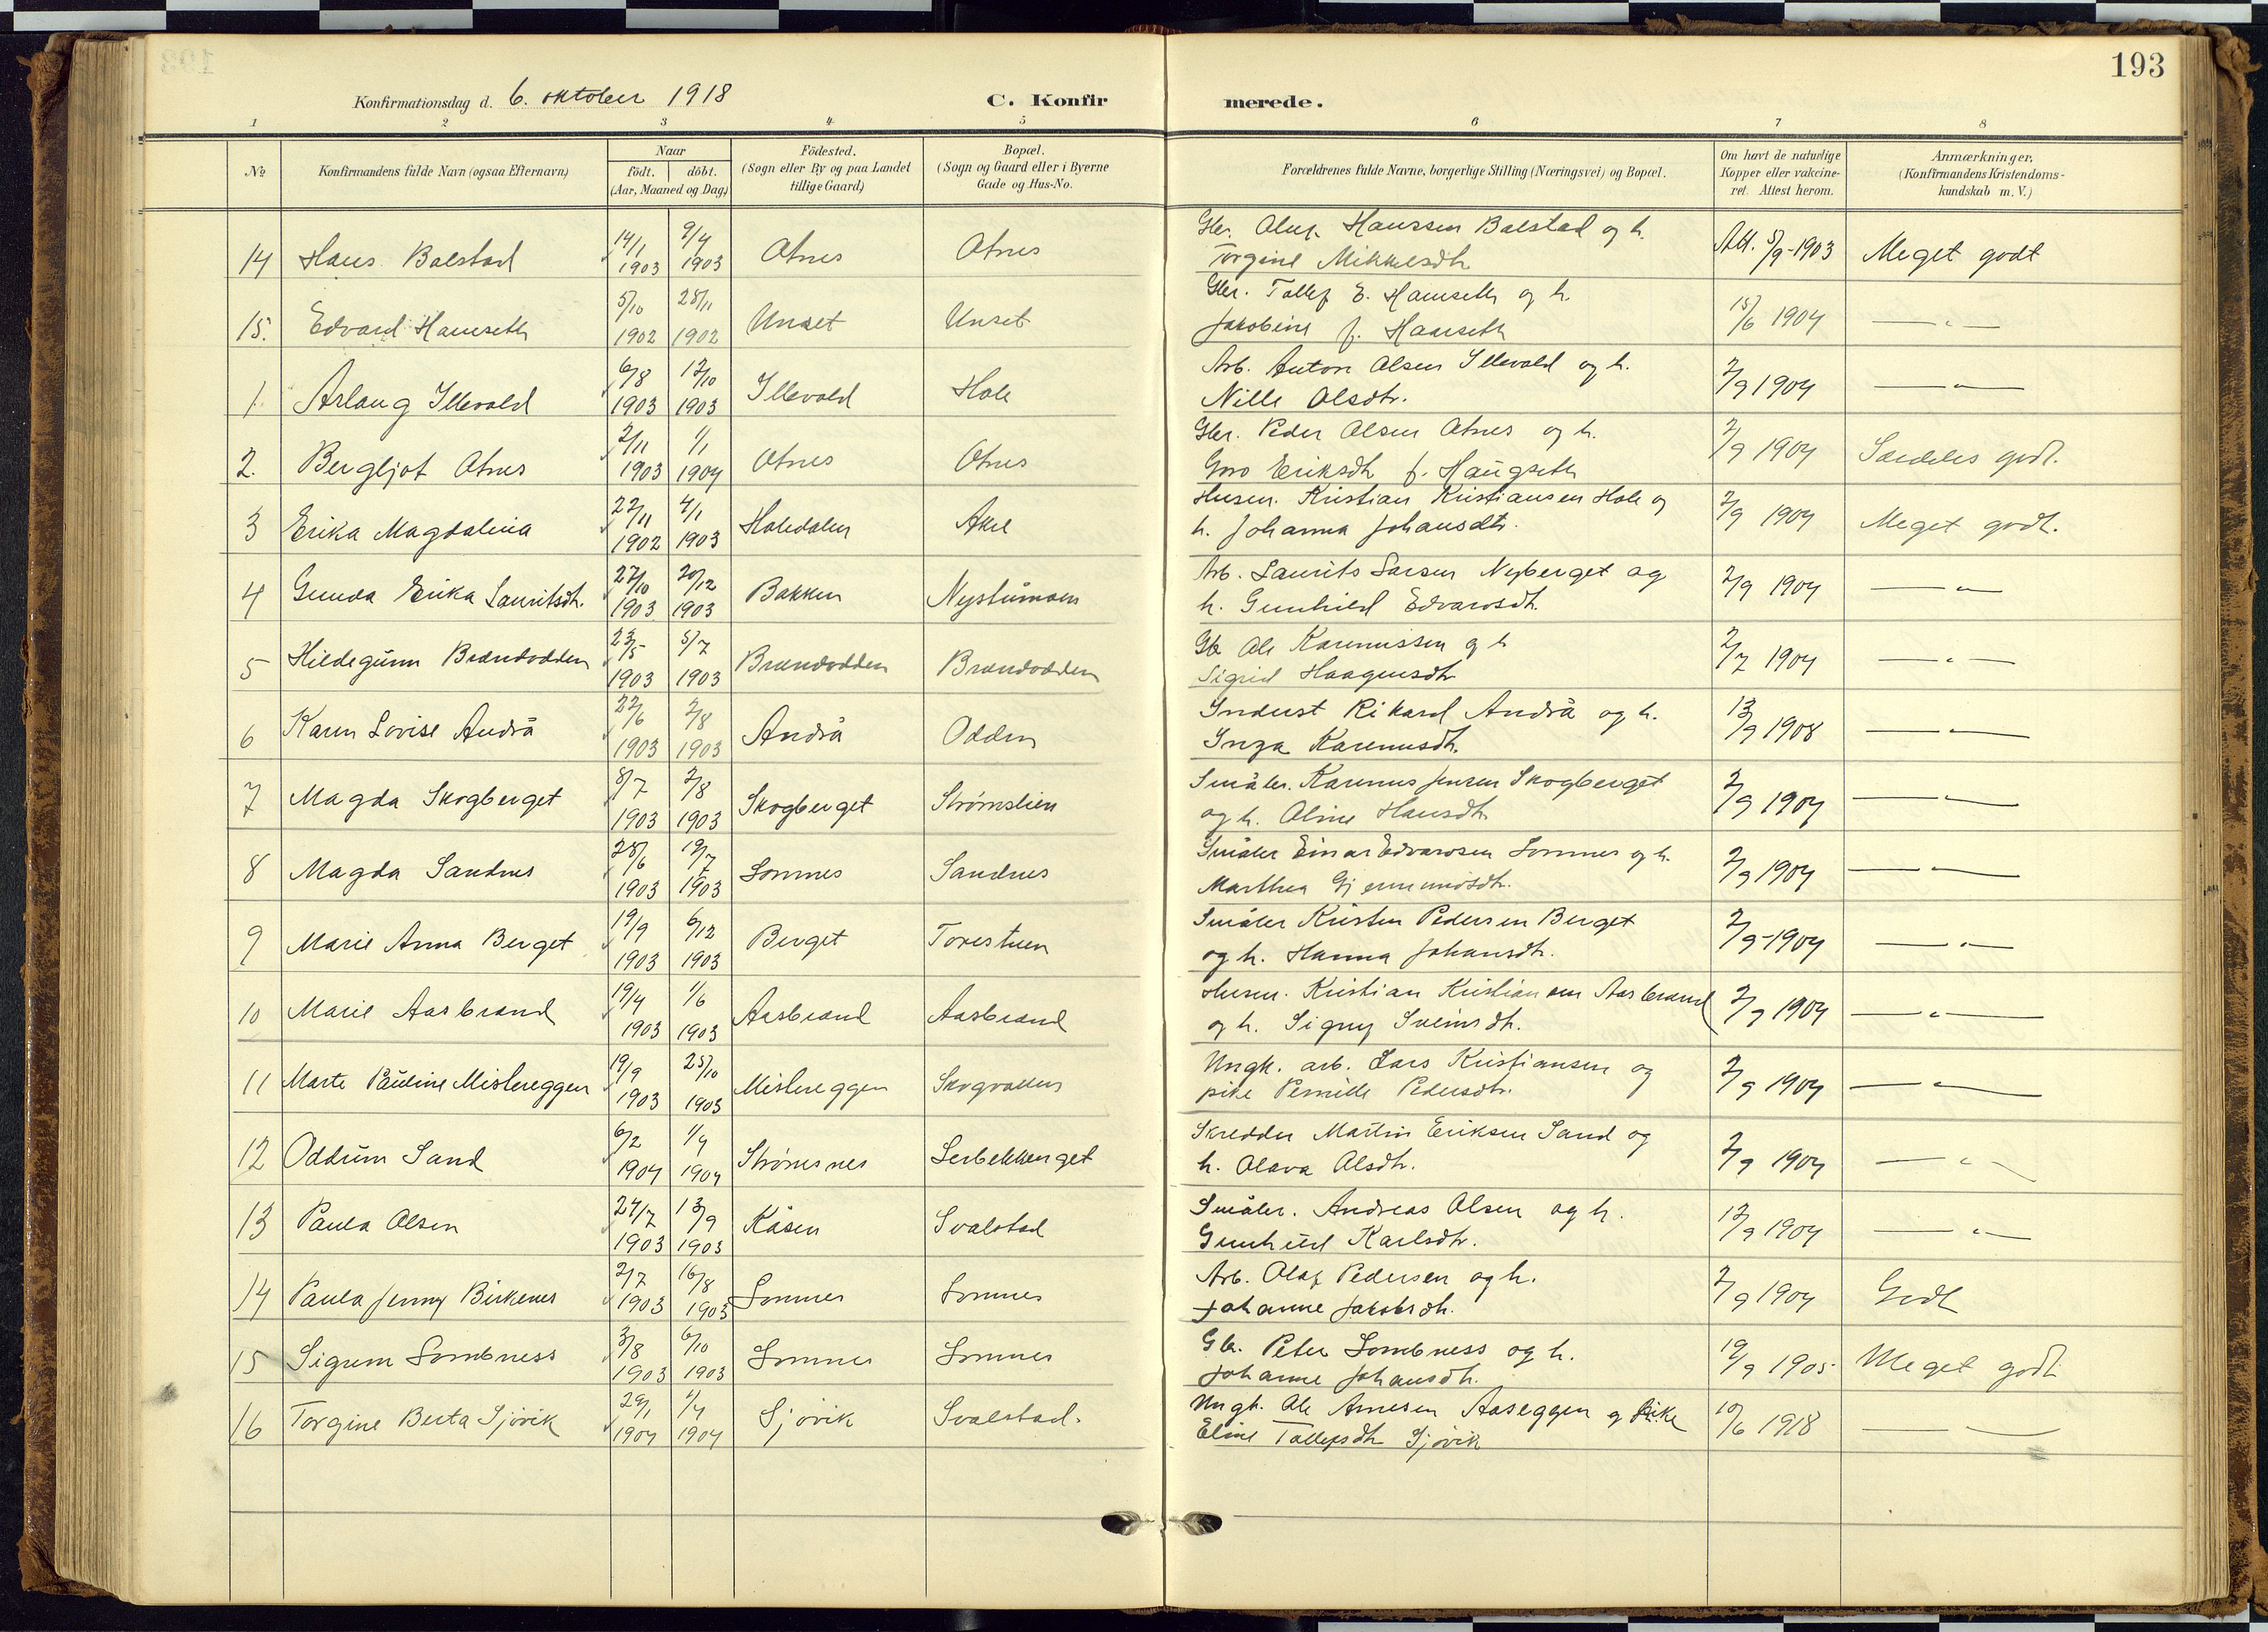 193
Konfirmationsdag d. 6. oktober 1918
C. Konfirmerede.
1 2 3 4 5 6 7 8
No
Konfirmandens fulde Navn (ogsaa Efternavn)
Naar
födt. döbt.
(Aar, Maaned og Dag)
Födested.
(Sogn eller By og paa Landet
tillige Gaard)
Bopæl.
(Sogn og Gaard eller i Byerne
Gade og Hus-No.
Forældrenes fulde Navne, borgerlige Stilling (Næringsvei) og Bopæl.
Om havt de naturlige
Kopper eller vakcine-
ret. Attest herom.
Anmærkninger,
(Konfirmandens Kristendoms-
kundskab m. V.)
14 Hans Bolstad 14/1 1903 9/4 1903 Atnes Atnes Gbr. Hanssen Bolstad og h.
Torgine Mikkelsdtr Att. 5/9-1903 Meget godt
15. Edvard Hamseth 5/10 1902 25/11 1902 Unset Unset Gbr. Tollef E. Hamseth og h.
Jakobine f. Hamseth 15/6 1904 —"—
1 Aslaug Illevold 6/8 1903 12/10 1903 Illevold Hole Arb. Anton Olsen Illevold og h.
Nille Olsdtr. 2/9 1904 —"—
2. Bergljot Atnes 2/11 1903 1/1 1904 Atnes Atnes Gbr. Peder Olsen Atnes og h.
Goro Eriksdtr f. Haugseth 2/9 1904 Særdeles godt.
3 Erika Magdalena 22/11 1902 4/1 1903 Holedalen Akre Husm. Kristian Kristiansen Hole og
h. Johanna Johansdtr. 2/9 1904 Meget godt.
4 Gunda Erika Lauritsdtr. 27/10 1903 20/12 1903 Bakken Nystumoen Arb. Laurits Larsen Nyberget og
h. Gunhild Edvardsdtr. 2/9 1904 —"—
5 Hildegunn Brændodden 23/5 1903 5/7 1903 Brændodden Brændodden Gb Ole Karenussen og h
Sigrid Haagensdtr 2/7 1904 —"—
6 Karen Lovise Andrå 22/6 1903 2/8 1903 Andrå Odden Inderst Rikard Andrå og h.
Inga Karenusdtr. 13/9 1908 —"—
7 Magda Skogberget 8/7 1903 2/8 1903 Skogberget Strømslien Småbr. Karenus Jensen Skogberget
og h. Oline Hansdtr 2/9 1904 —"—
8 Magda Sandnes 28/6 1903 19/7 1903 Lomnes Sandnes Småbr Einar Edvardsen Lomnes og h.
Marthea Gjermundsdtr. 2/9 1904 —"—
9 Marie Anna Berget 19/9 1903 6/12 1903 Berget Torestuen Småbr Kristen Pedersen Berget
og h. Hanna Johansdtr. 2/9-1904 —"—
10 Marie Aasbrand 19/4 1903 1/6 1903 Aasbrand Aasbrand Husm. Kristian Kristiansen Aasbrand
og h. Signy Sveinsdtr. 2/9 1904 —"—
11 Marte Pauline Mistereggen 19/9 1903 25/10 1903 Mistereggen Skogvollen Ungk. arb. Lars Kristiansen og
pike Pernille Pedersdtr. 2/9 1904 —"—
12 Oddrun Sand 6/2 1904 1/4 1904 Strømsnes Skredder Martin Eriksen Sand og
h. Olava Olsdtr. 2/9 1904 —"—
13 Paula Olsen 24/7 1903 13/9 1903 Kåsen Svalstad Småbr. Andreas Olsen og h.
Gunhild Karlsdtr. 12/9 1904 —"—
14 Paula Jenny Birkenes 2/7 1903 16/8 1903 Lomnes Lomnes Arb. Olaf Pedersen og h.
Johanne Jakobsdtr. 2/9 1904 Godt
15 Sigrun Lombness 3/8 1903 6/10 1903 Lomnes Lomnes Gbr. Peter Lombness og h.
Johanne Johansdtr. 19/9 1905 Meget godt
16 Torgine Berta Sjövik 29/1 1904 1/4 1904 Sjövik Svalstad. Ungk. Ole Arnesen Aaseggen og pike
Eline Tollefsdtr Sjövik 10/6 1918 — —